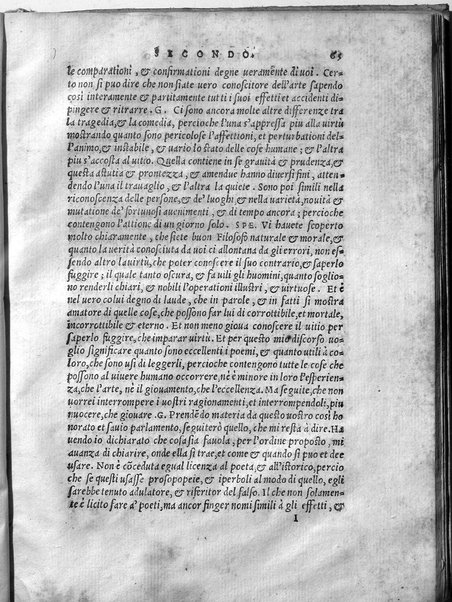 SECONDO. 65
le comparationi, & confirmationi degne ueramēte di uoi. Cer-
to non si puo dire che non siate uero conoscitore dell'arte sapendo
cosi interamente & partitamente tutti i suoi effetti et accidenti di-
pingere et ritrarre. G. Ci sono ancora molte altre differenze tra
la tragedia, & la comedia, percioche l'una s'appressa piu alla uirtu
mostrando quanto sono pericolose l'affettioni, et perturbationi del-
l'animo, & instabile, & uario lo stato delle cose humane; & l'altra
piu s'accosta al uitio. Quella contiene in se grauità & prudenza, &
questa astutia & prontezza, & amendue hanno diuersi fini, atten-
dendo l'una il trauaglio, & l'altra la quiete. Sono poi simili nella
riconoscenza delle persone, & de' luoghi & nella uarietà, nouità &
mutatione de' fortunosi auenimenti, & di tempo ancora; percioche
contengono l'attione di un giorno solo. SPE. Vi hauete scoperto
molto chiaramente, che siete buon Filosofo naturale & morale, &
quanto la uerità conosciuta da uoi ci allontana da gli errori, non es-
sendo altro la uirtù, che poter conoscere il suo contrario, & saperlo
fuggire; il quale tanto oscura, & fa uili gli huomini, quanto soglio-
no renderli chiari, & nobili l'operationi illustri, & uirtuose. Et è
nel uero colui degno di laude, che in parole, & in fatti si mostra
amatore di quelle cose, che possono far lui di corrottibile, et mortale,
incorrottibile & eterno. Et non meno gioua conoscere il uitio per
saperlo fuggire, che imparar uirtù. Et per questo mio discorso uo-
glio significare quanto sono eccellenti i poemi, & quanto utili à co-
loro, che sono usi di leggerli, percioche contengono tutte le cose che
possono al uiuere humano occorrere, nè è minore in loro l'esperien-
za, che l'arte, nè il giouamento, che l'eccellenza. Ma seguite, che non
uorrei interrompere i uostri ragionamenti, et interrompendoli, piu
nuocere, che giouare. G. Prendēdo materia da questo uostro cosi ho
norato et sauio parlamento, seguiterò quello, che mi resta à dire. Ha
uendo io dichiarato che cosa sia fauola, per l'ordine proposto, mi
auanza di chiarire, onde ella si trae, et come & quando si puo et dee
usare. Non è cōceduta egual licenza al poeta, & all'istorico, percio
che se questi usasse prosopopeie, & iperboli al modo di quello, egli
sarebbe tenuto adulatore, & riferitor del falso. Il che non solamen-
te è licito fare a' poeti, ma ancor finger nomi simili à gli effetti, &
I